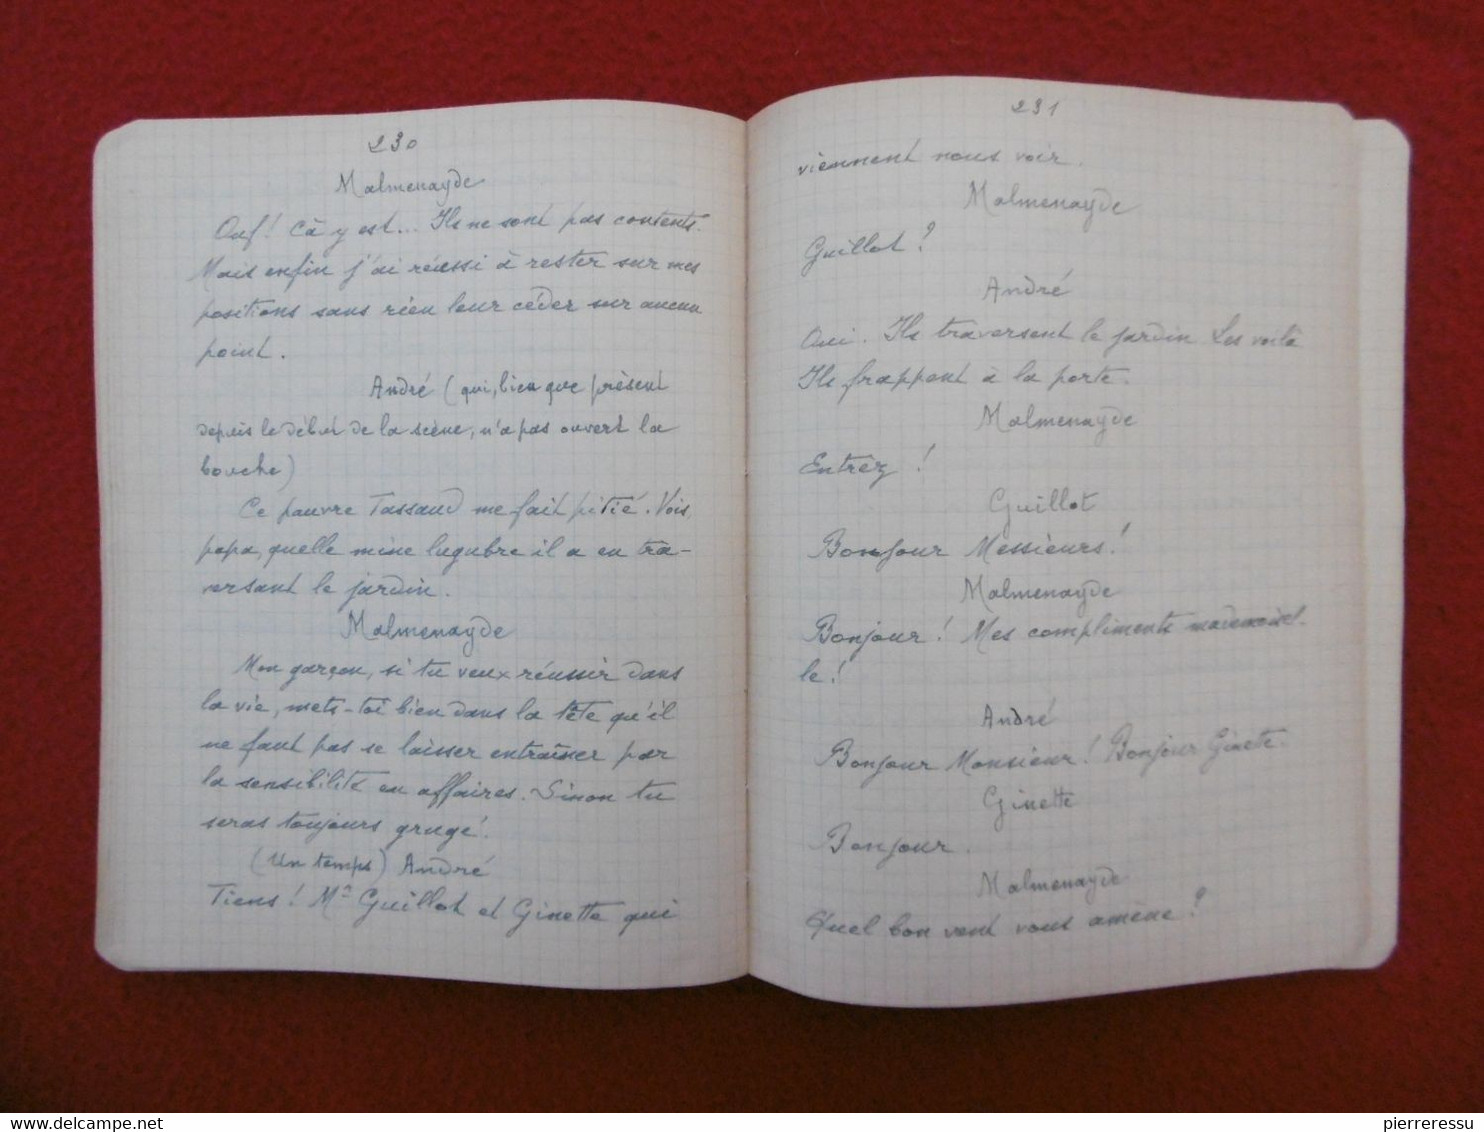 230
Malmenayde
Ouf! Cà y est... Ils ne sont pas contents.
Mais enfin j'ai réussi à rester sur mes
positions sans rien leur céder sur aucun
point.
André (qui, bien que présent
depuis le début de la scène, n'a pas ouvert la
bouche)
Ce pauvre Tassaud me fait pitié. Vois,
papa, quelle mine lugubre il a en tra-
versant le jardin.
Malmenayde
Mon garçon, si tu veux réussir dans
la vie, mets-toi bien dans la tête qu'il
ne faut pas se laisser entraîner par
la sensibilité en affaires. Sinon tu
seras toujours grugé.
(Un temps) André
Tiens! Mr Guillot et Ginette qui
231
viennent nous voir.
Malmenayde
Guillot?
André
Oui. Ils traversent le jardin Les voilà
Ils frappent à la porte.
Malmenayde
Entrez!
Guillot
Bonjour Messieurs!
Malmenayde
Bonjour! Mes compliments mademoisel-
le!
André
Bonjour Monsieur! Bonjour Ginette.
Ginette
Bonjour.
Malmenayde
Quel bon vent vous amène?
delcampe.net
pierreressu